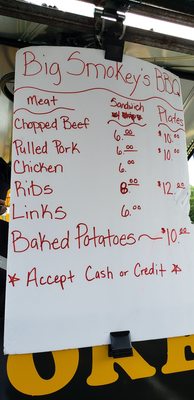 Big Smokey's BBQ
Meat Sandwich Plates
Chopped Beef 6.00 $10.00
Pulled Pork 6.00 $10.00
Chicken 6.00
Ribs 8.00 $12.00
Links 6.00
Baked Potatoes $10.00
* Accept Cash or Credit *
OKE